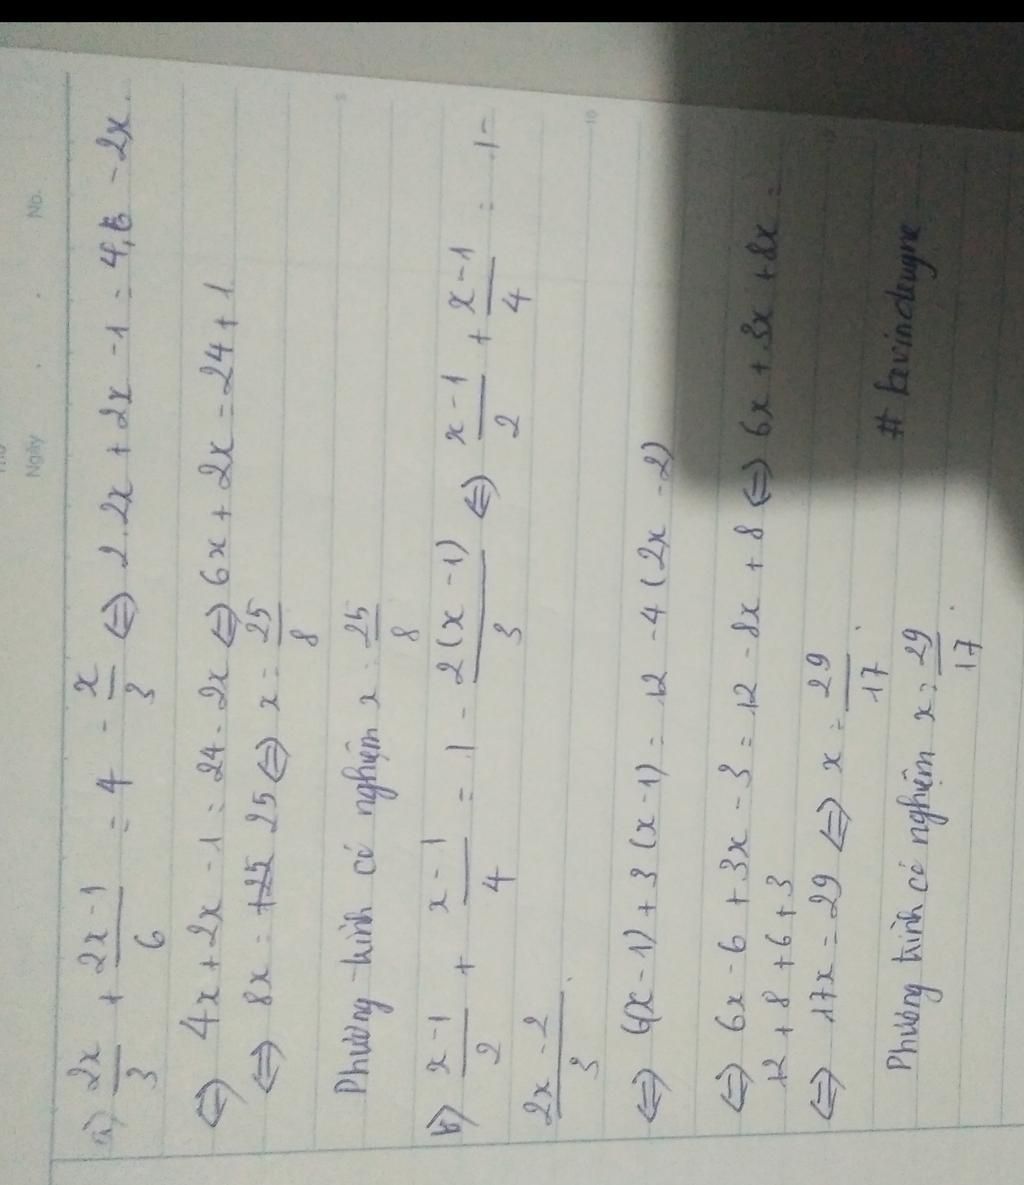 Ngày . . No.
a) 2x/3 + (2x-1)/6 = 4 - x/3 ⇔ 2.2x + 2x - 1 = 4.6 - 2x.
⇔ 4x + 2x - 1 = 24 - 2x ⇔ 6x + 2x = 24 + 1
⇔ 8x = 25 ⇔ x = 25/8
Phương trình có nghiệm x = 25/8
b) (x-1)/2 + (x-1)/4 = 1 - 2(x-1)/3 ⇔ (x-1)/2 + (x-1)/4 = 1 -
(2x-2)/3.
⇔ 6(x-1) + 3(x-1) = 12 - 4(2x-2)
⇔ 6x - 6 + 3x - 3 = 12 - 8x + 8 ⇔ 6x + 3x + 8x =
12 + 8 + 6 + 3
⇔ 17x = 29 ⇔ x = 29/17.
Phương trình có nghiệm x = 29/17.